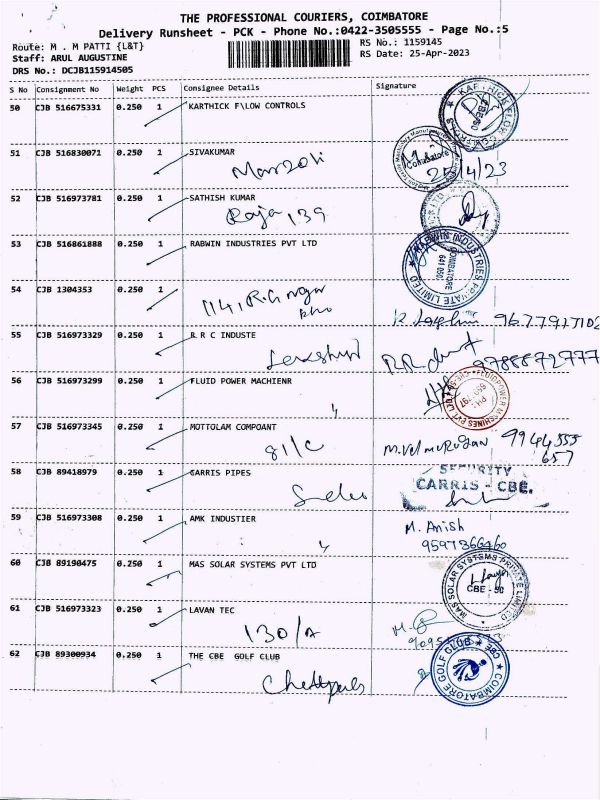 THE PROFESSIONAL COURIERS, COIMBATORE
Delivery Runsheet - PCK - Phone No.:0422-3505555 - Page No.:5
Route: M . M PATTI {L&T}
RS No.: 1159145
Staff: ARUL AUGUSTINE
RS Date: 25-Apr-2023
DRS No.: DCJB115914505
S No Consignment No Weight PCS Consignee Details Signature
50 CJB 516675331 0.250 1 KARTHICK F\LOW CONTROLS
51 CJB 516830071 0.250 1 SIVAKUMAR
Coimbatore
25/4/23
52 CJB 516973781 0.250 1 SATHISH KUMAR
Raja 139
53 CJB 516861888 0.250 1 RABWIN INDUSTRIES PVT LTD
RABWIN INDUSTRIES PRIVATE LIMITED
COIMBATORE
641 050.
54 CJB 1304353 0.250 1
114, R.G nagar
55 CJB 516973329 0.250 1 R R C INDUSTE
9788872777
56 CJB 516973299 0.250 1 FLUID POWER MACHIENR
57 CJB 516973345 0.250 1 MOTTOLAM COMPOANT
81/C
M.Velmurugan 9944555
657
58 CJB 89418979 0.250 1 CARRIS PIPES
SECURITY
CARRIS - CBE.
59 CJB 516973308 0.250 1 AMK INDUSTIER
M. Anish
60 CJB 89190475 0.250 1 MAS SOLAR SYSTEMS PVT LTD
MAS SOLAR SYSTEMS PRIVATE LIMITED
CBE - 50
61 CJB 516973323 0.250 1 LAVAN TEC
130/A
62 CJB 89300934 0.250 1 THE CBE GOLF CLUB
COIMBATORE GOLF CLUB
CBE